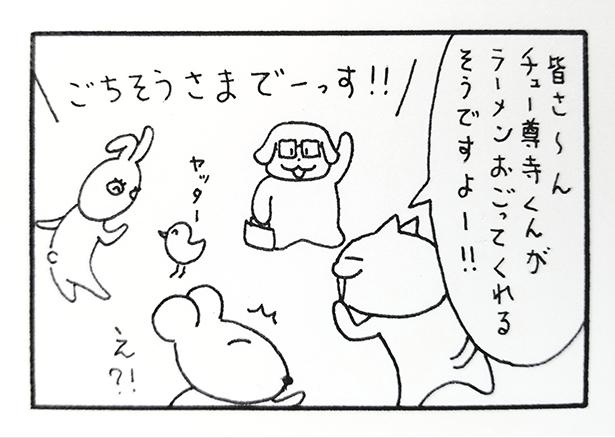 皆さ〜ん
チュー尊寺くんが
ラーメンおごってくれる
そうですよー!!
ごちそうさまでーっす!!
ヤッター
え?!